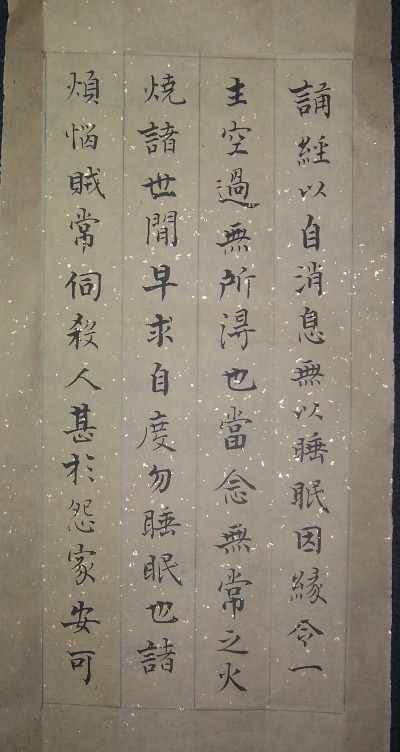 誦經以自消息無以睡眠因緣令一
生空過無所得也當念無常之火
燒諸世間早求自度勿睡眠也諸
煩惱賊常伺殺人甚於怨家安可